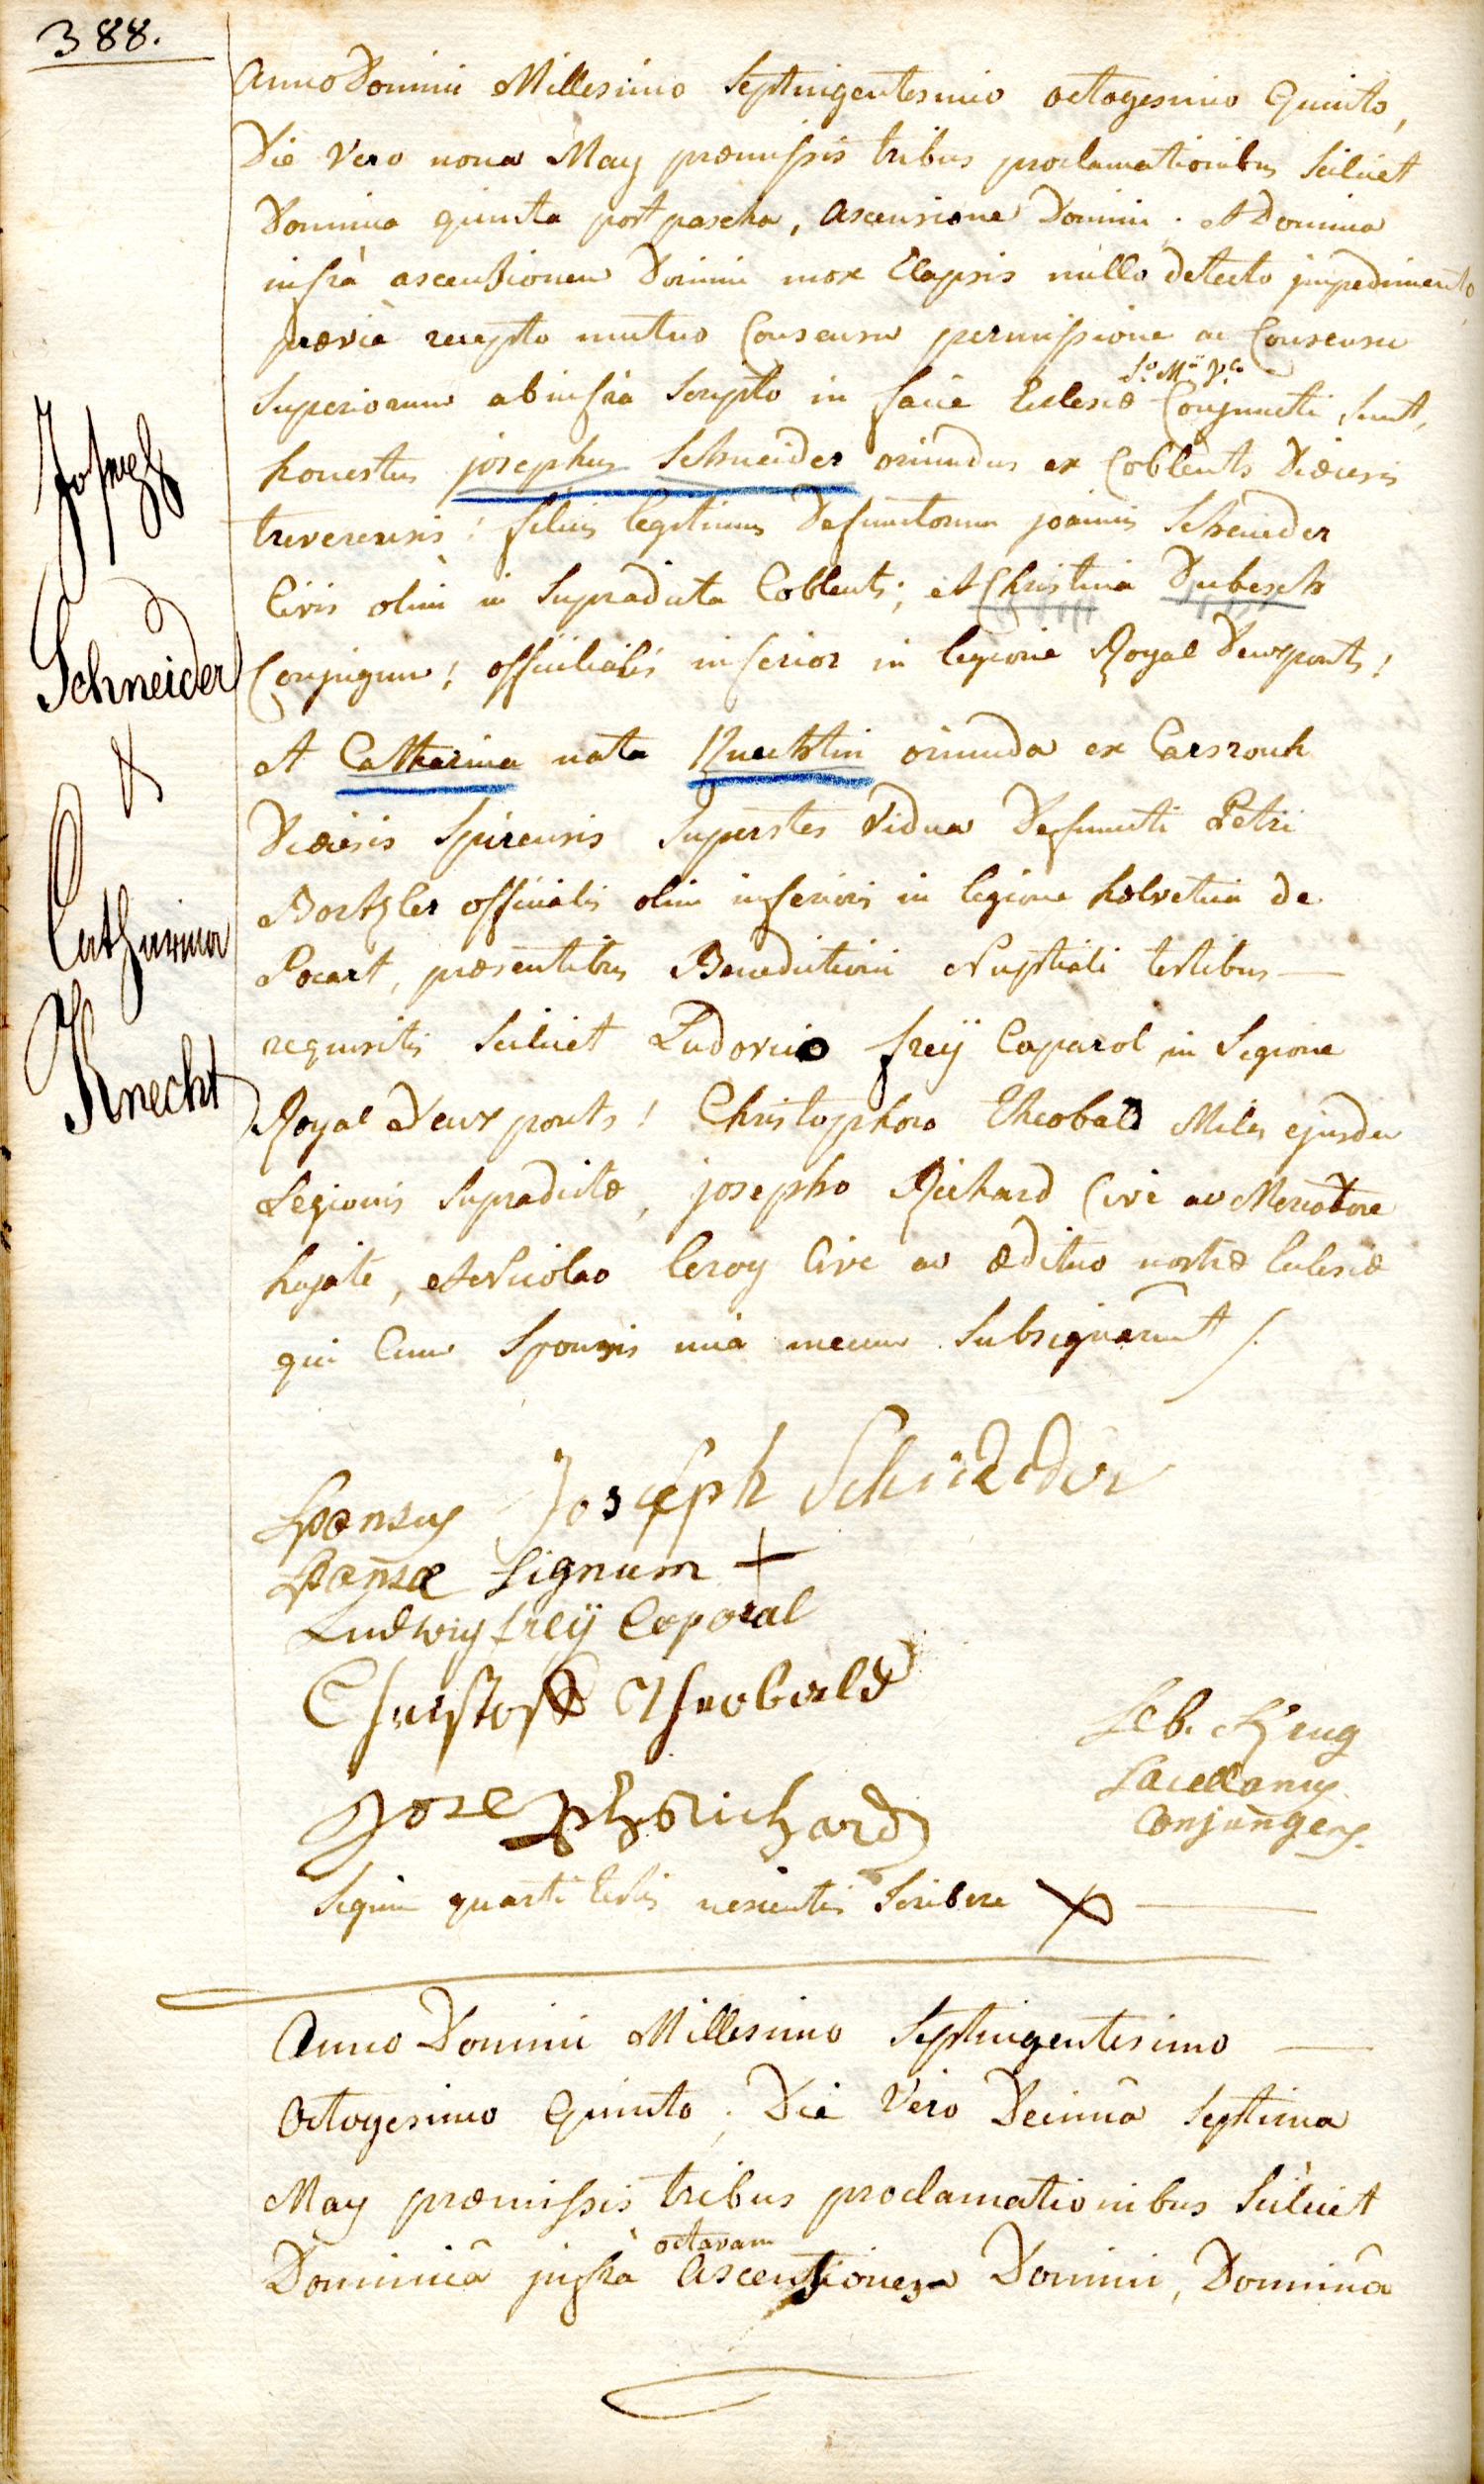 388.
Anno Domini Millesimo Septingentesimo octogesimo Quinto,
Die Vero nona May præmissis tribus proclamationibus Scilicet
Dominica quinta post pascha, Ascensione Domini. et Dominica
infrà ascensionem Domini mox Elapsis nullo detecto impedimento
prævie recepto mutuo Consensu permissione ac Consensu
Superiorum ab infrà Scripto in facie Eclesiæ Conjuncti Sunt,
honestus josephus Schneider oriundus ex Coblents Diœcesis
treverensis! filius legitimus Defunctorum joannis Schneider
Civis olim in Supradicta Coblents; et Christina Dubesch
Conjugum! officialis inferior in legione Royal Deuxponts!
et Catharina nata Knechtin oriunda ex Carsrouh
Diœcesis Spirensis Superstes Vidua Defuncti Petri
officialis olim inferioris in legione helvetica de
præsentibus Benedictioni Nuptiali testibus —
requisitis Scilicet Ludovico freÿ Caparol in Legione
Royal Deux ponts! Christophoro Theobald Miles ejusdem
Legionis Supradictæ, josepho Richard Cive ac Mercatore
hujate, et Nicolao leroy Cive ac ædituo nostræ Eclesiæ
qui Cum Sponsis unà mecum Subsignarunt /.
Joseph
Schneider
&
Catharina
Knecht
Sponsus Joseph Schneider
Sponsæ Signum +
Ludwig freÿ Caporal
Christoph Theobald
Joseph Richard
Seb.
Sacellanus
Conjungens.
Signum quarti testis nescientis Scribere X —
Anno Domini Millesimo Septingentesimo —
Octogesimo Quinto, Die Vero Decimâ Septima
May præmissis tribus proclamationibus Scilicet
Dominicâ jnfrà octavam Ascensionem Domini, Dominicâ